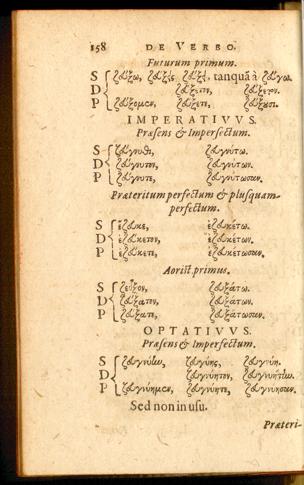 158 DE VERBO.
Futurum primum.
S ζεύξω, ζεύξεις, ζεύξει, tanquã à ζεύγω.
D ζεύξετον, ζεύξετον.
P ζεύξομεν, ζεύξετε, ζεύξουσι.
IMPERATIVVS.
Præsens & Imperfectum.
S ζεύγνυθι, ζευγνύτω.
D ζεύγνυτον, ζευγνύτων.
P ζεύγνυτε, ζευγνύτωσαν.
Præteritum perfectum & plusquam-
perfectum.
S ἔζευκε, ἐζευκέτω.
D ἐζεύκετον, ἐζευκέτων.
P ἐζεύκετε, ἐζευκέτωσαν.
Aorist. primus.
S ζεῦξον, ζευξάτω.
D ζεύξατον, ζευξάτων.
P ζεύξατε, ζευξάτωσαν.
OPTATIVVS.
Præsens & Imperfectum.
S ζευγνύην, ζευγνύης, ζευγνύη.
D ζευγνύητον, ζευγνυήτην.
P ζευγνύημεν, ζευγνύητε, ζευγνύησαν.
Sed non in usu.
Præteri-